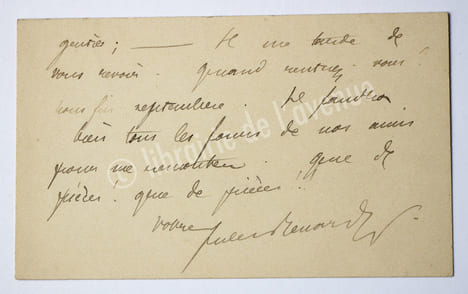 genties; — Il me tarde de
vous revoir. Quand rentrez-vous?
nous fin septembre. Il faudra
bien tous les de nos amis
pour me remonter. Que de
pièces. Que de pièces!
votre
Jules Renard
© librairie de l'avenue